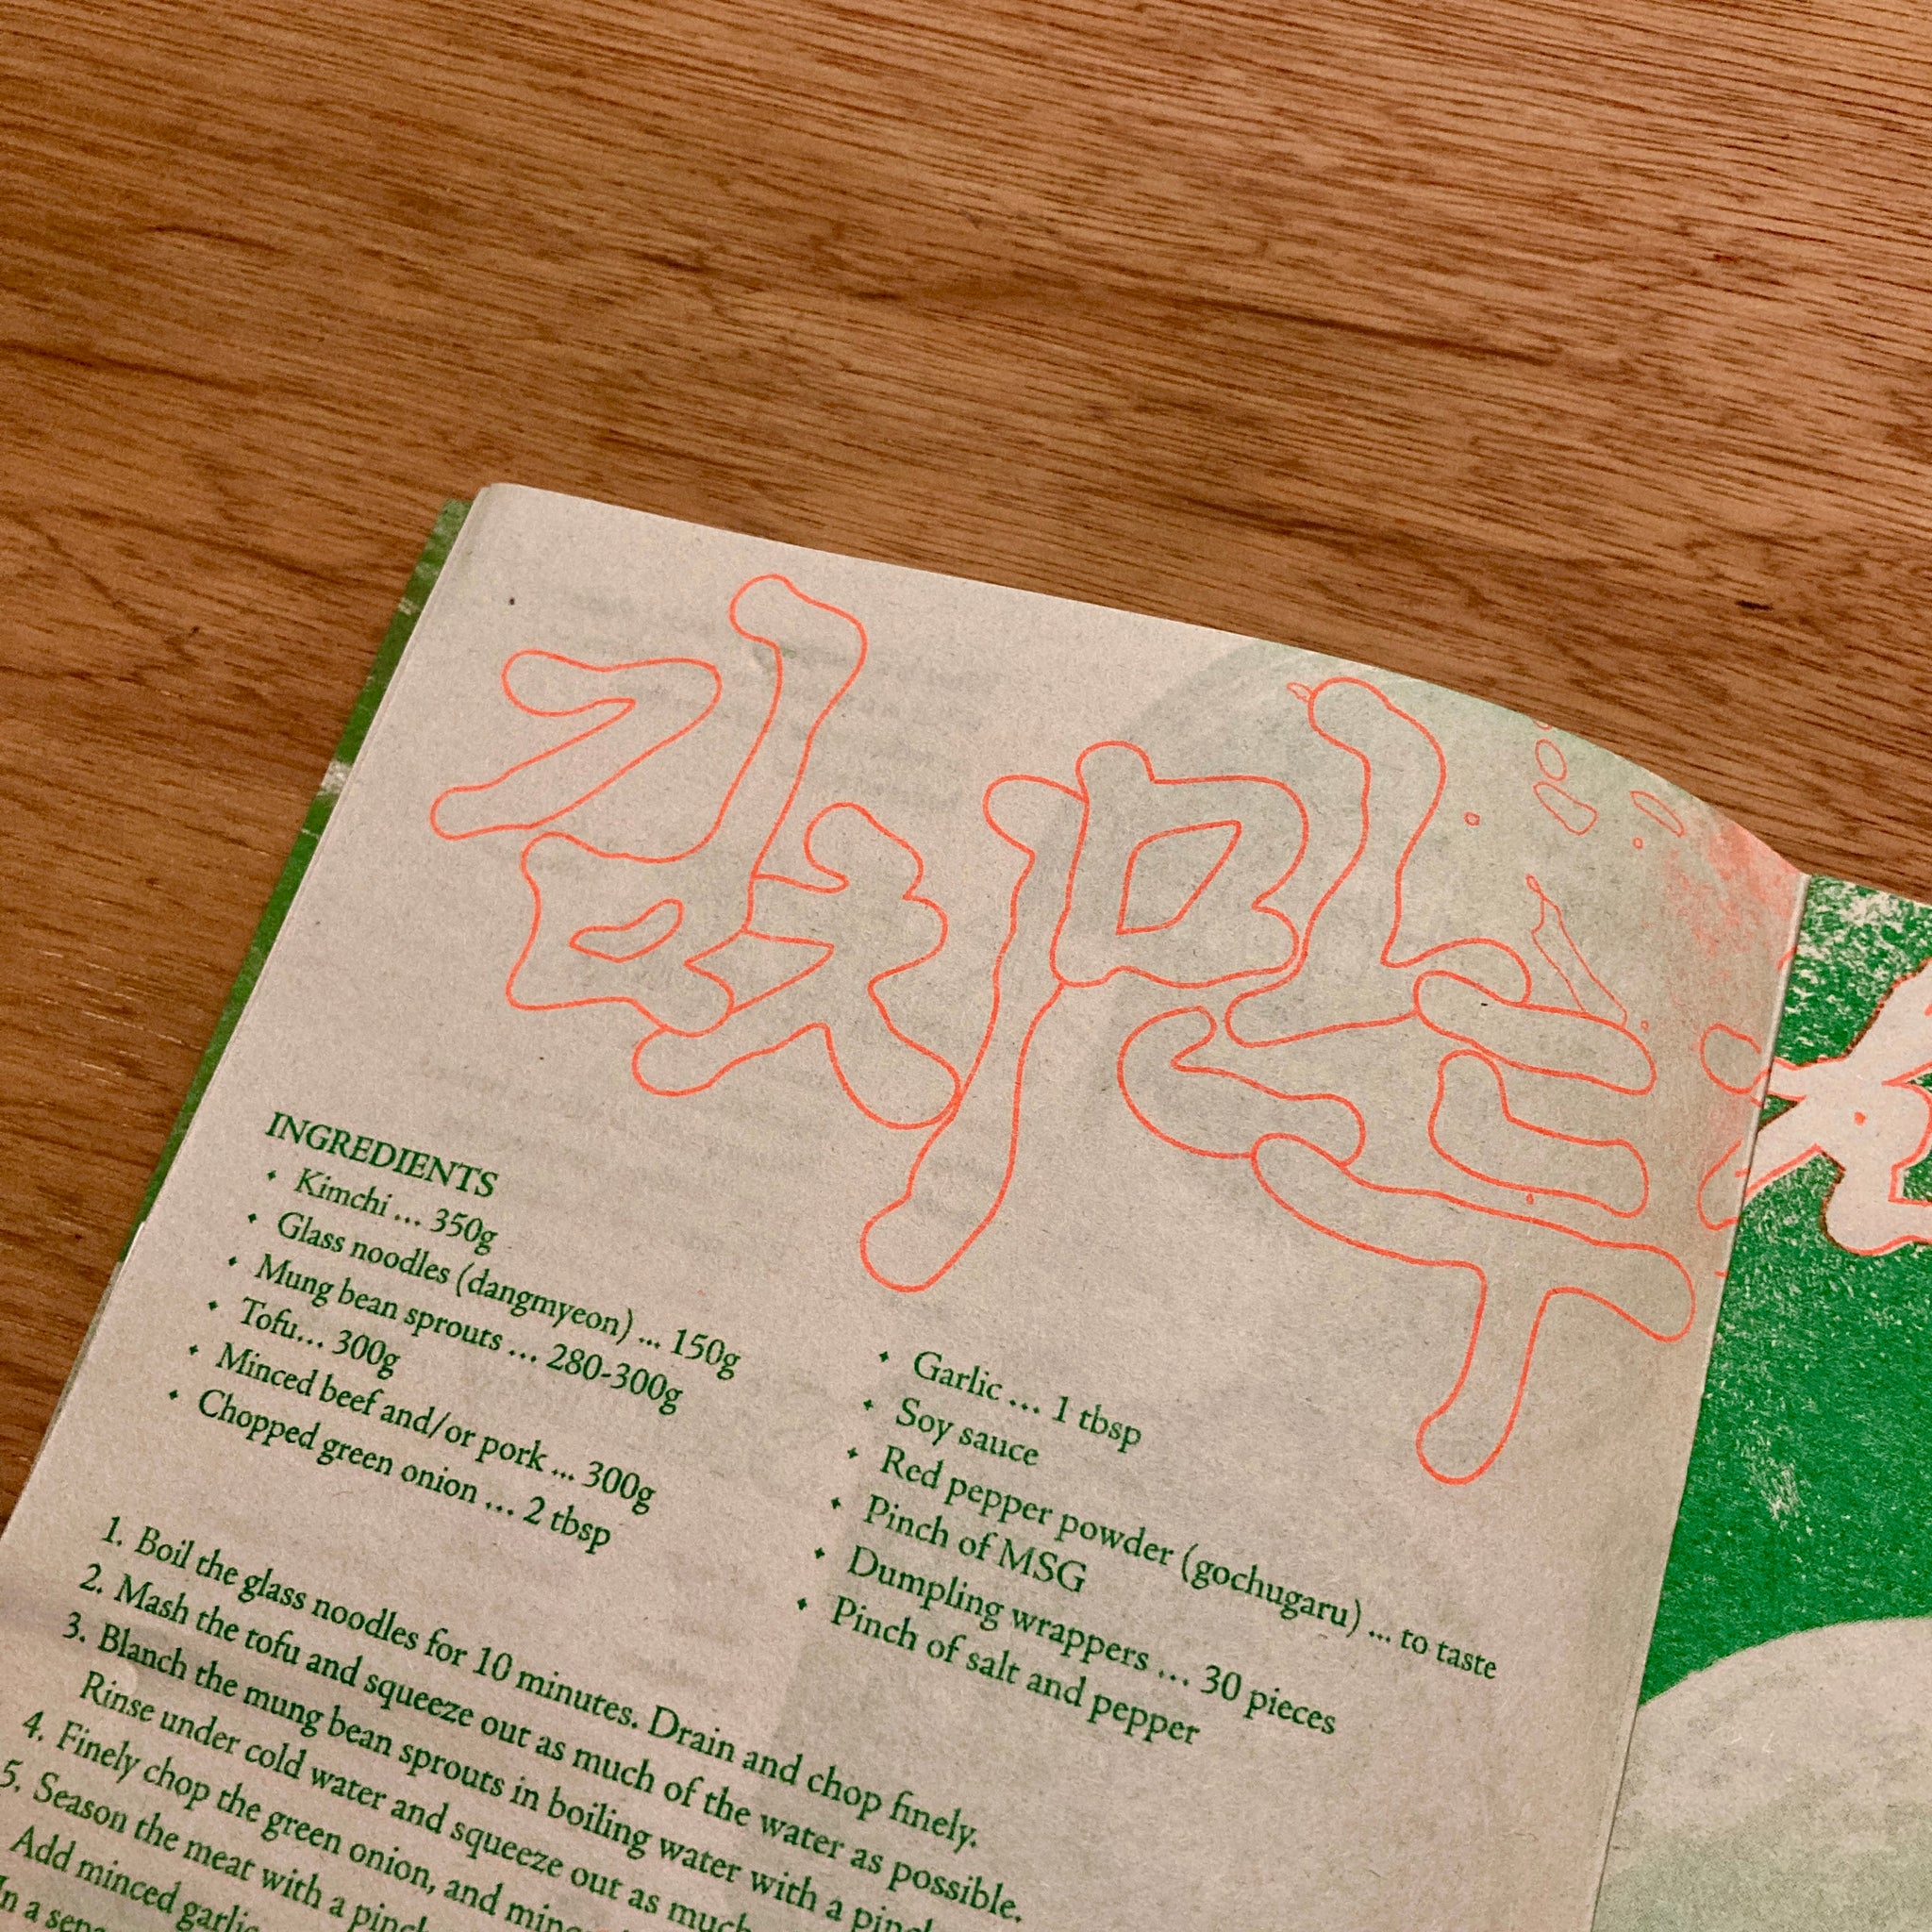 김치만두
INGREDIENTS
• Kimchi ... 350g
• Glass noodles (dangmyeon) ... 150g
• Mung bean sprouts ... 280-300g
• Tofu... 300g
• Minced beef and/or pork ... 300g
• Chopped green onion ... 2 tbsp
• Garlic ... 1 tbsp
• Soy sauce
• Red pepper powder (gochugaru) ... to taste
• Pinch of MSG
• Dumpling wrappers ... 30 pieces
• Pinch of salt and pepper
1. Boil the glass noodles for 10 minutes. Drain and chop finely.
2. Mash the tofu and squeeze out as much of the water as possible.
3. Blanch the mung bean sprouts in boiling water with a pinch
Rinse under cold water and squeeze out as much
4. Finely chop the green onion, and
5. Season the meat with a pinch
Add minced garlic
In a